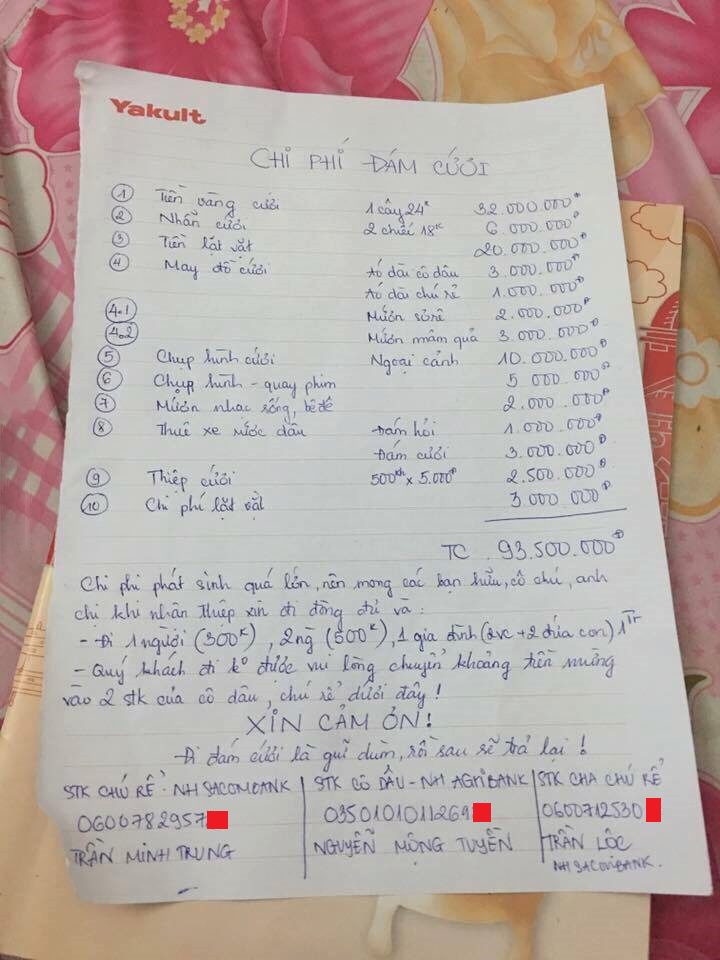 Yakult
CHI PHÍ ĐÁM CƯỚI
① Tiền vàng cưới 1 cây 24k 32.000.000đ
② Nhẫn cưới 2 chiếc 18k 6.000.000đ
③ Tiền lặt vặt 20.000.000đ
④ May đồ cưới Áo dài cô dâu 3.000.000đ
Áo dài chú rể 1.000.000đ
4.1 Mướn sơrê 2.000.000đ
4.2 Mướn mâm quả 3.000.000đ
⑤ Chụp hình cưới Ngoại cảnh 10.000.000đ
⑥ Chụp hình - quay phim 5.000.000đ
⑦ Mướn nhạc sống, bê đê 2.000.000đ
⑧ Thuê xe rước dâu Đám hỏi 1.000.000đ
Đám cưới 3.000.000đ
⑨ Thiệp cưới 500th x 5.000đ 2.500.000đ
⑩ Chi phí lặt vặt 3.000.000đ
TC 93.500.000đ
Chi phí phát sinh quá lớn, nên mong các bạn hữu, cô chú, anh
chị khi nhận thiệp xin đi đông đủ và:
- Đi 1 người (300k), 2ng (500k), 1 gia đình (2vc + 2 đứa con) 1Tr
- Quý khách đi ko được vui lòng chuyển khoảng tiền mừng
vào 2 stk của cô dâu, chú rể dưới đây!
XIN CẢM ƠN!
- Đi đám cưới là gửi dùm, rồi sau sẽ trả lại!
STK CHÚ RỂ - NH SACOMBANK
0600782957
TRẦN MINH TRUNG
STK CÔ DÂU - NH AGRIBANK
0350101011269
NGUYỄN MỘNG TUYỀN
STK CHA CHÚ RỂ
0600712530
TRẦN LỘC
NH SACOMBANK.